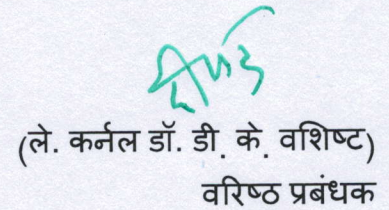 (ले. कर्नल डॉ. डी. के. वशिष्ट)
वरिष्ठ प्रबंधक